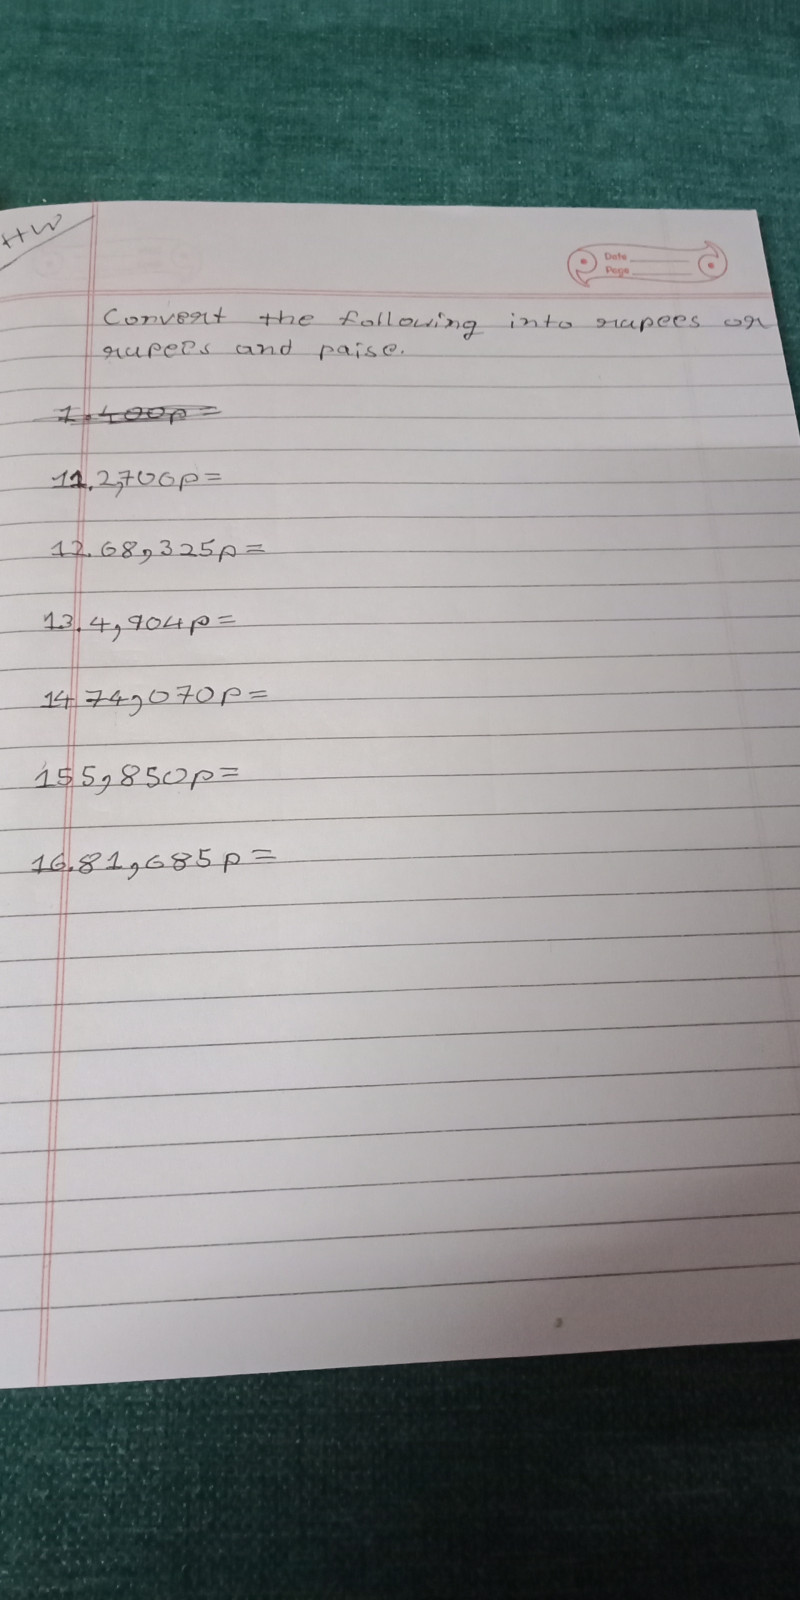 HW
Date
Page
Convert the following into rupees or
rupees and paise.
1.400p=
11.2,700p=
12.68,325p=
13.4,904p=
14 74,070p=
15 5,850p=
16.81,685p=